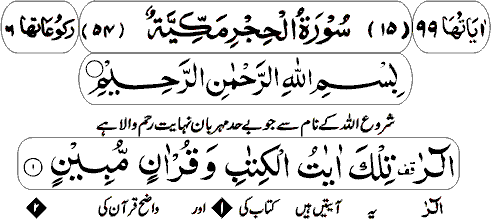 اٰیَاتُهَا ۹۹ (۱۵) سُوْرَةُ الْحِجْرِ مَكِّیَّةٌ (۵۴) رُكُوْعَاتُهَا ۶
بِسْمِ اللّٰهِ الرَّحْمٰنِ الرَّحِیْمِ
شروع اللہ کے نام سے جو بے حد مہربان نہایت رحم والا ہے
الٓرٰ ۫ تِلْكَ اٰیٰتُ الْكِتٰبِ وَ قُرْاٰنٍ مُّبِیْنٍ ۱
الٓرٰ یہ آیتیں ہیں کتاب کی ۱ اور واضح قرآن کی ۲